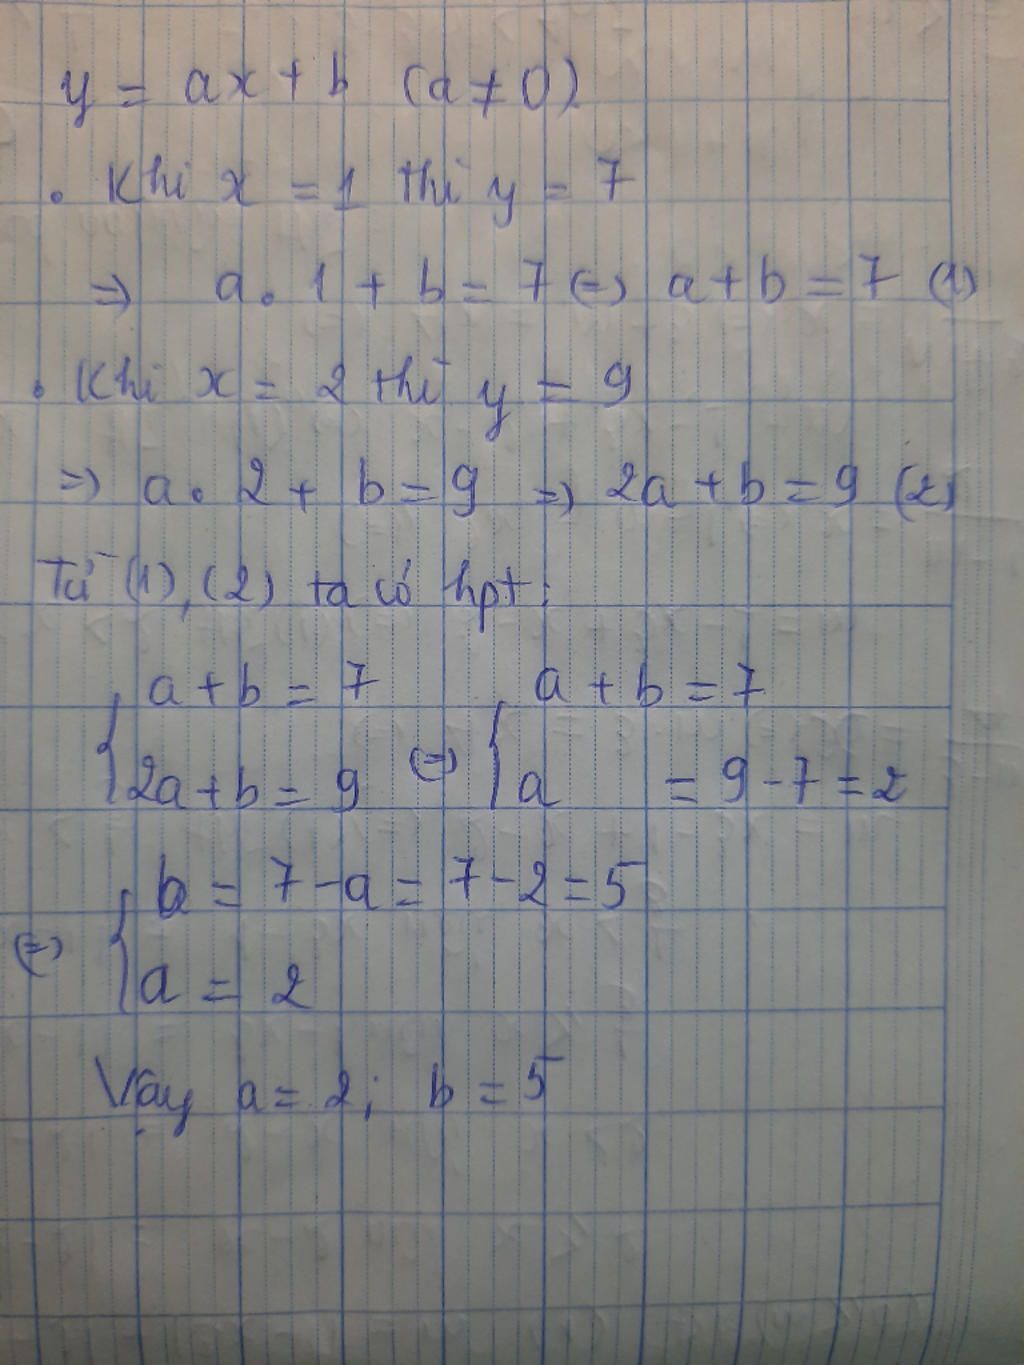 y = ax + b (a ≠ 0)
. Khi x = 1 thì y = 7
=> a . 1 + b = 7 <=> a + b = 7 (1)
. Khi x = 2 thì y = 9
=> a . 2 + b = 9 => 2a + b = 9 (2)
Từ (1), (2) ta có hpt:
{ a + b = 7 <=> { a + b = 7
{ 2a + b = 9 { a = 9 - 7 = 2
<=> { b = 7 - a = 7 - 2 = 5
{ a = 2
Vậy a = 2; b = 5